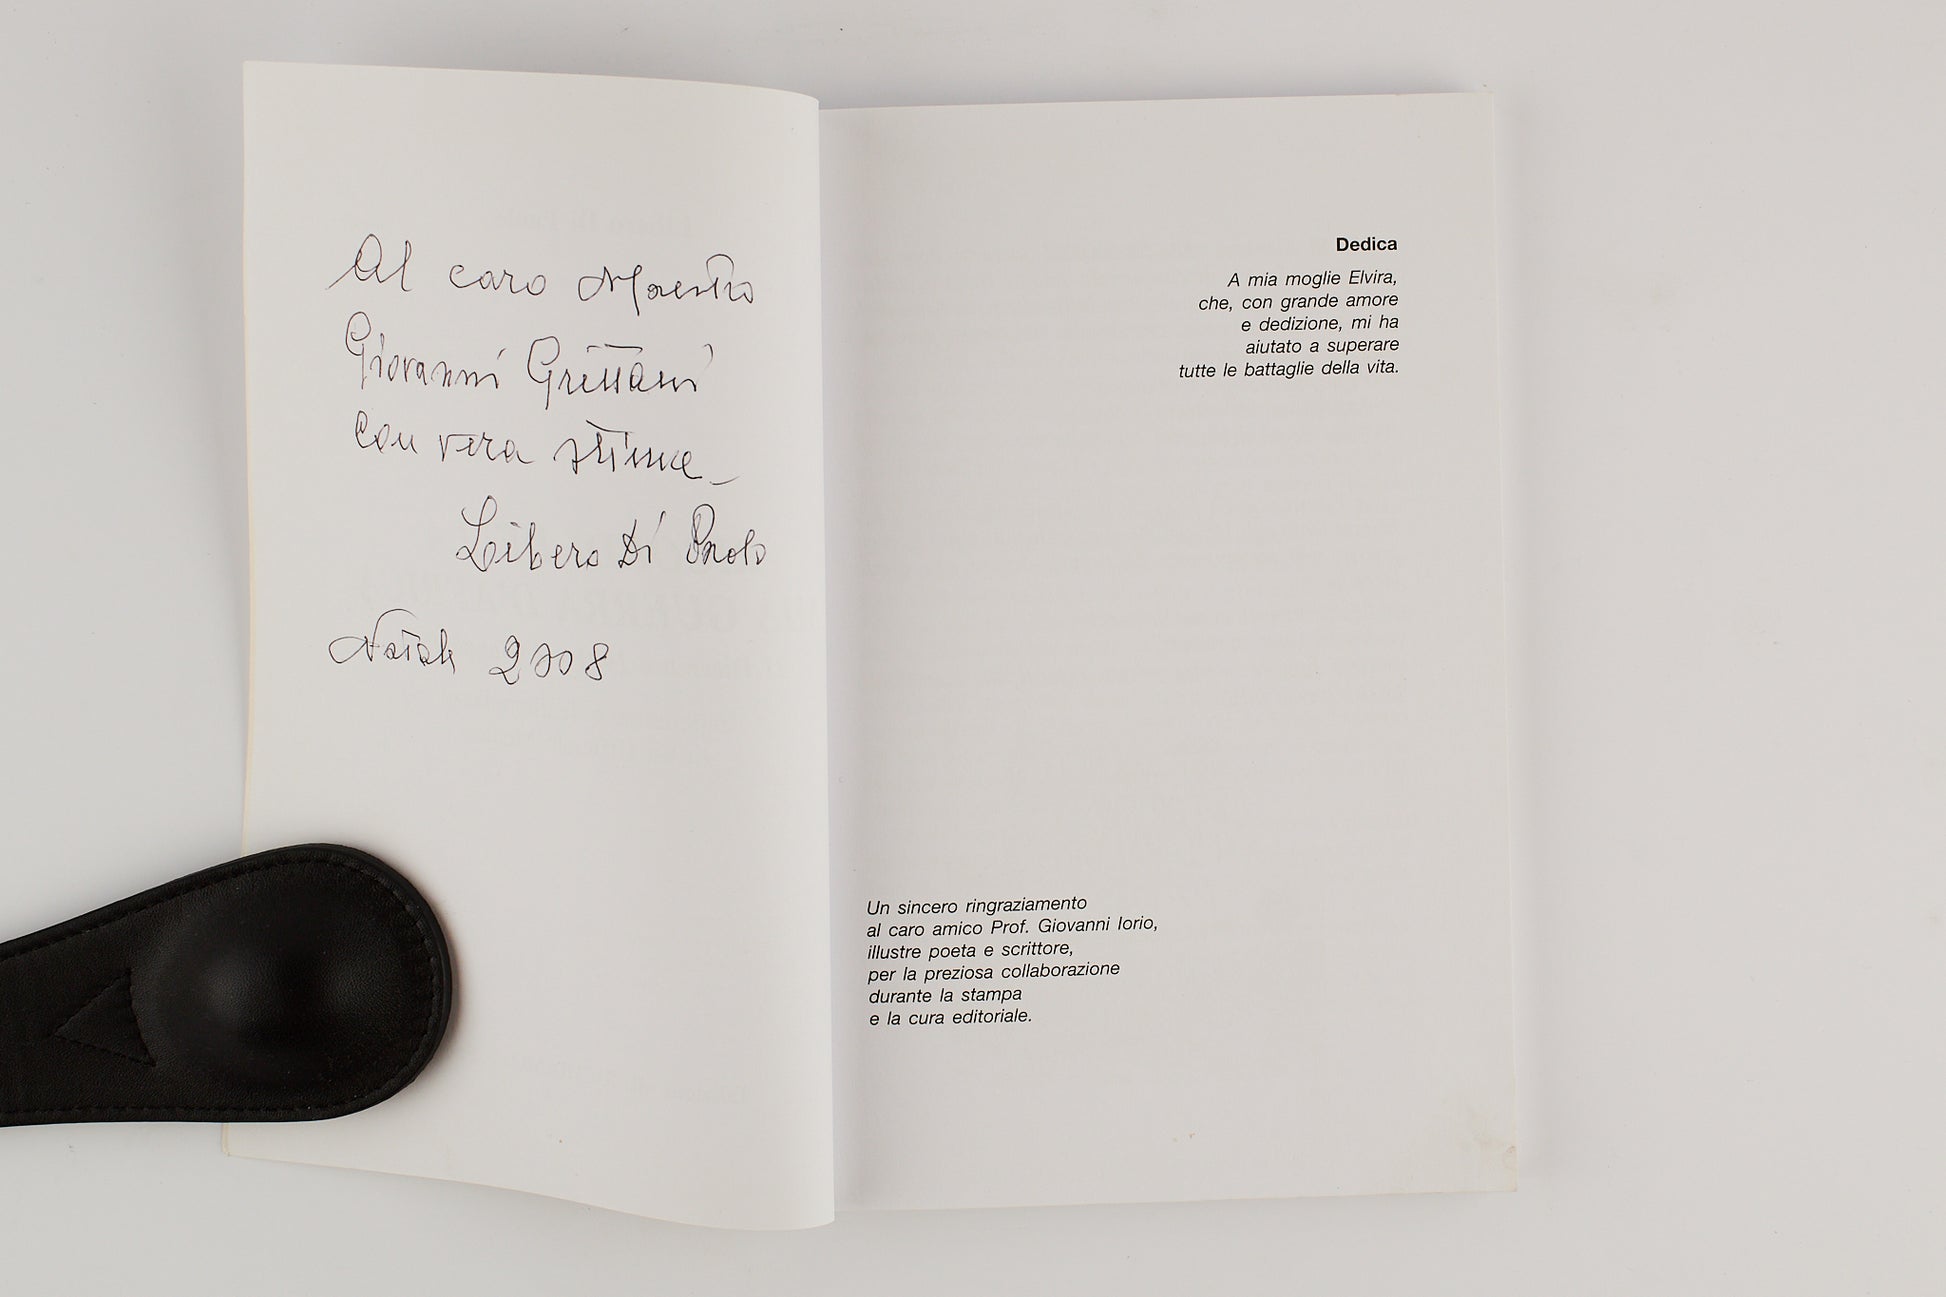 Al caro Maestro
Giovanni Grittani
con vera stima
Libero Di Paolo
Natale 2008
Dedica
A mia moglie Elvira,
che, con grande amore
e dedizione, mi ha
aiutato a superare
tutte le battaglie della vita.
Un sincero ringraziamento
al caro amico Prof. Giovanni Iorio,
illustre poeta e scrittore,
per la preziosa collaborazione
durante la stampa
e la cura editoriale.